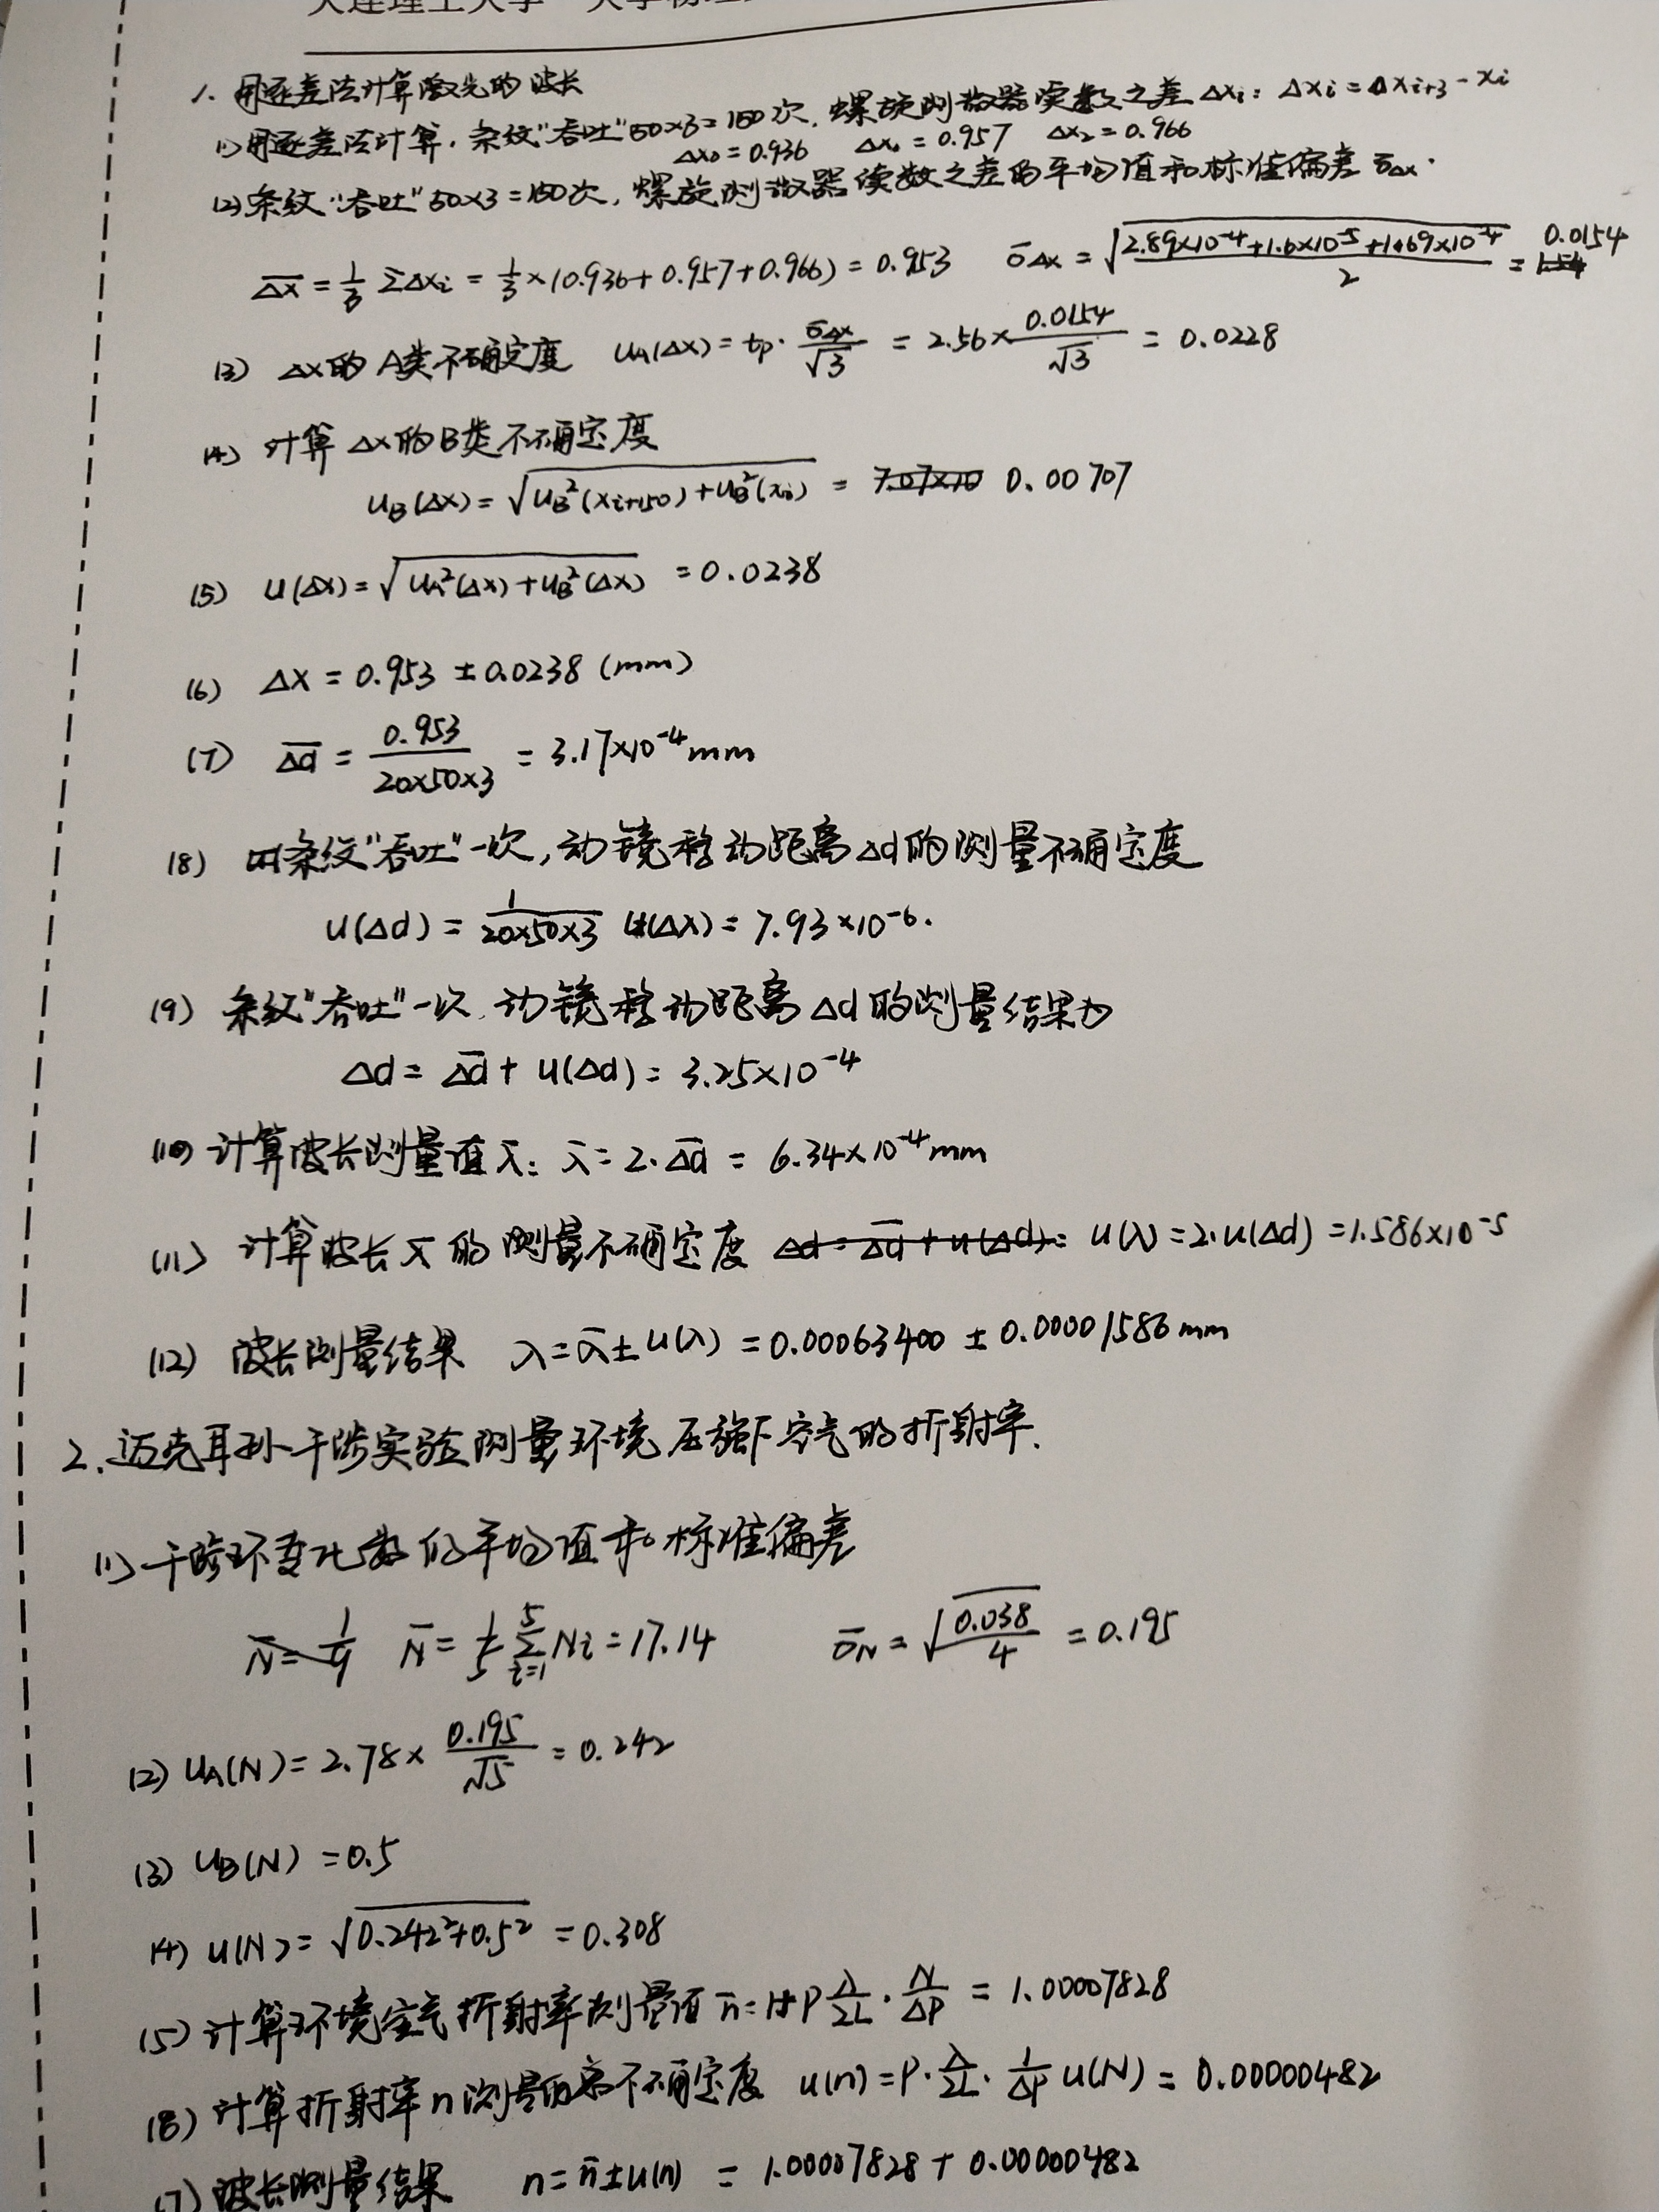 大连理工大学 大学物理
1. 用逐差法计算激光的波长
(1)用逐差法计算,条纹"吞吐"50×3=150次,螺旋测微器读数之差Δxi:Δxi=Δxi+3-xi
Δx0=0.936 Δx1=0.957 Δx2=0.966
(2)条纹"吞吐"50×3=150次,螺旋测微器读数之差的平均值和标准偏差σ̄Δx.
Δ̄x̄=1/3 ΣΔxi=1/3×(0.936+0.957+0.966)=0.953 σ̄Δx=√(2.89×10⁻⁴+1.6×10⁻⁵+1.69×10⁻⁴/2)=0.0154
(3) Δx的A类不确定度 uA(Δx)=tp·σ̄Δx/√3=2.56×0.0154/√3=0.0228
(4) 计算Δx的B类不确定度
uB(Δx)=√(uB²(xi+150)+uB²(xi))=0.00707
(5) u(Δx)=√(uA²(Δx)+uB²(Δx))=0.0238
(6) Δx=0.953±0.0238(mm)
(7) Δ̄d̄=0.953/20×50×3=3.17×10⁻⁴mm
(8) 条纹"吞吐"一次,动镜移动距离Δd的测量不确定度
u(Δd)=1/20×50×3 u(Δx)=7.93×10⁻⁶.
(9) 条纹"吞吐"一次,动镜移动距离Δd的测量结果为
Δd=Δ̄d̄+u(Δd)=3.25×10⁻⁴
(10)计算波长测量值λ̄:λ̄=2·Δ̄d̄=6.34×10⁻⁴mm
(11) 计算波长λ̄的测量不确定度 Δd=Δ̄d̄+u(Δd)= u(λ)=2·u(Δd)=1.586×10⁻⁵
(12) 波长测量结果 λ=λ̄±u(λ)=0.00063400±0.00001586mm
2.迈克耳孙干涉实验测量环境压强下空气的折射率.
(1)干涉环变化数的平均值和标准偏差
N̄=1/9 N̄=1/5 Σ(i=1→5)Ni=17.14 σ̄N=√(0.038/4)=0.195
(2) uA(N)=2.78×0.195/√5=0.242
(3) uB(N)=0.5
(4) u(N)=√(0.242²+0.5²)=0.308
(5)计算环境空气折射率测量值n̄=1+P λ/2L·N/ΔP=1.00007828
(6)计算折射率n测量的不确定度 u(n)=P·λ/2L·1/ΔP u(N)=0.00000482
(7)波长测量结果 n=n̄±u(n)=1.00007828+0.00000482